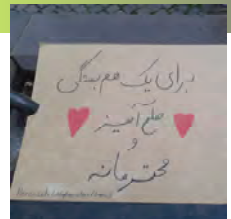 برای یک همبستگی
صلح آمیز
و
محترمانه